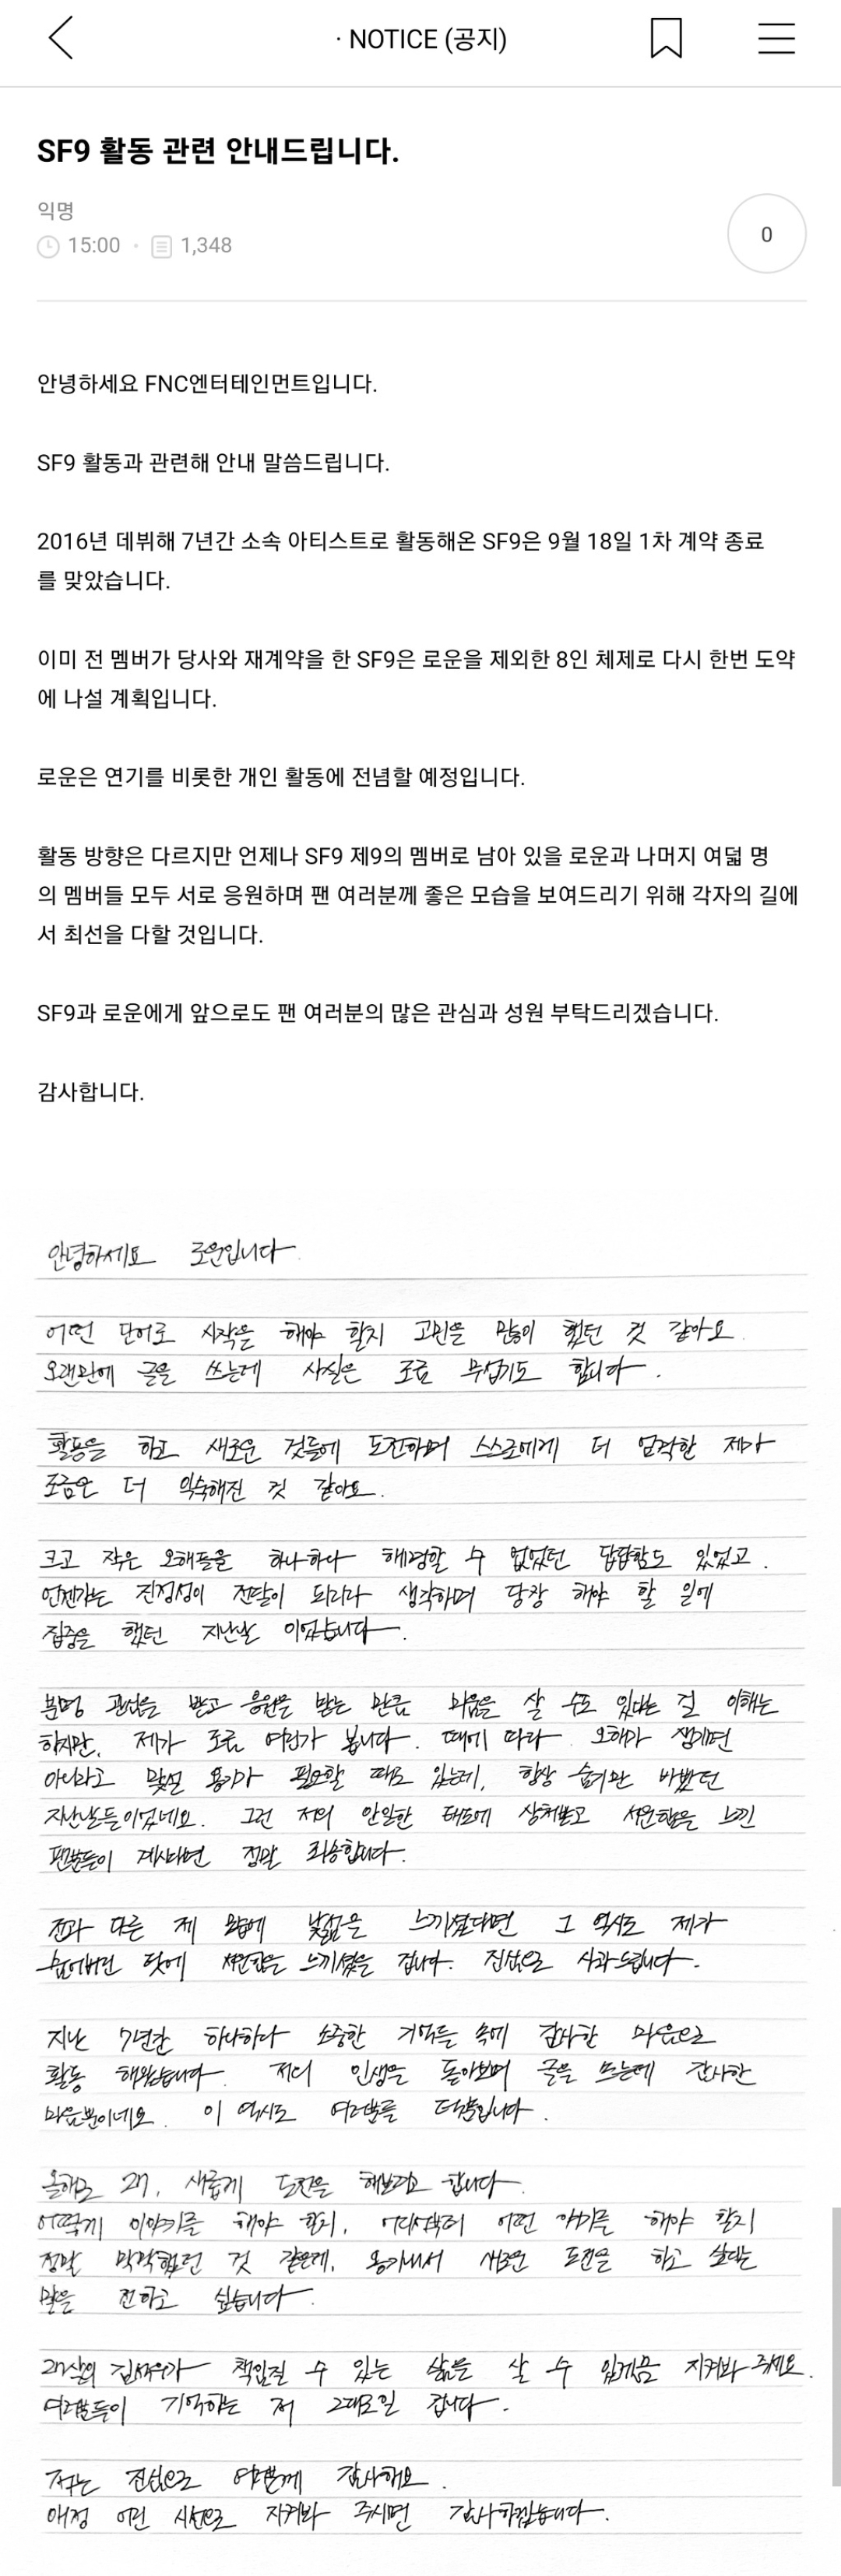 · NOTICE (공지)
SF9 활동 관련 안내드립니다.
익명
15:00 · 1,348
0
안녕하세요 FNC엔터테인먼트입니다.
SF9 활동과 관련해 안내 말씀드립니다.
2016년 데뷔해 7년간 소속 아티스트로 활동해온 SF9은 9월 18일 1차 계약 종료
를 맞았습니다.
이미 전 멤버가 당사와 재계약을 한 SF9은 로운을 제외한 8인 체제로 다시 한번 도약
에 나설 계획입니다.
로운은 연기를 비롯한 개인 활동에 전념할 예정입니다.
활동 방향은 다르지만 언제나 SF9 제9의 멤버로 남아 있을 로운과 나머지 여덟 명
의 멤버들 모두 서로 응원하며 팬 여러분께 좋은 모습을 보여드리기 위해 각자의 길에
서 최선을 다할 것입니다.
SF9과 로운에게 앞으로도 팬 여러분의 많은 관심과 성원 부탁드리겠습니다.
감사합니다.
안녕하세요 로운입니다
어떤 단어로 시작을 해야 할지 고민을 많이 했던 것 같아요.
오랜만에 글을 쓰는데 사실은 조금 무섭기도 합니다.
활동을 하고 새로운 것들에 도전하며 스스로에게 더 엄격한 제가
조금은 더 익숙해진 것 같아요.
크고 작은 오해들을 하나하나 해명할 수 없었던 답답함도 있었고.
언젠가는 진정성이 전달이 되리라 생각하며 당장 해야 할 일에
집중을 했던 지난날 이었습니다.
분명 관심을 받고 응원을 받는 만큼 미움을 살 수도 있다는 걸 이해는
하지만, 제가 조금 여린가 봅니다. 때에 따라 오해가 생기면
아니라고 맞설 용기가 필요할 때도 있는데, 항상 숨기만 바빴던
지난날들이었네요. 그런 저의 안일한 태도에 상처받고 서운함을 느낀
팬분들이 계시다면 정말 죄송합니다.
전과 다른 제 모습에 낯섦을 느끼셨다면 그 역시도 제가
숨어버린 탓에 서운함을 느끼셨을 겁니다. 진심으로 사과드립니다.
지난 7년간 하나하나 소중한 기억들 속에 감사한 마음으로
활동 해왔습니다. 저의 인생을 돌아보며 글을 쓰는데 감사한
마음뿐이네요. 이 역시도 여러분들 덕분입니다.
올해로 27, 새롭게 도전을 해보려고 합니다.
어떻게 이야기를 해야 할지, 어디서부터 어떤 얘기를 해야 할지
정말 막막했던 것 같은데, 용기내서 새로운 도전을 하고 싶다는
말을 전하고 싶습니다.
27살의 김석우가 책임질 수 있는 삶을 살 수 있게끔 지켜봐 주세요.
여러분들이 기억하는 저 그대로일 겁니다.
저는 진심으로 여러분께 감사해요.
애정 어린 시선으로 지켜봐 주시면 감사하겠습니다.